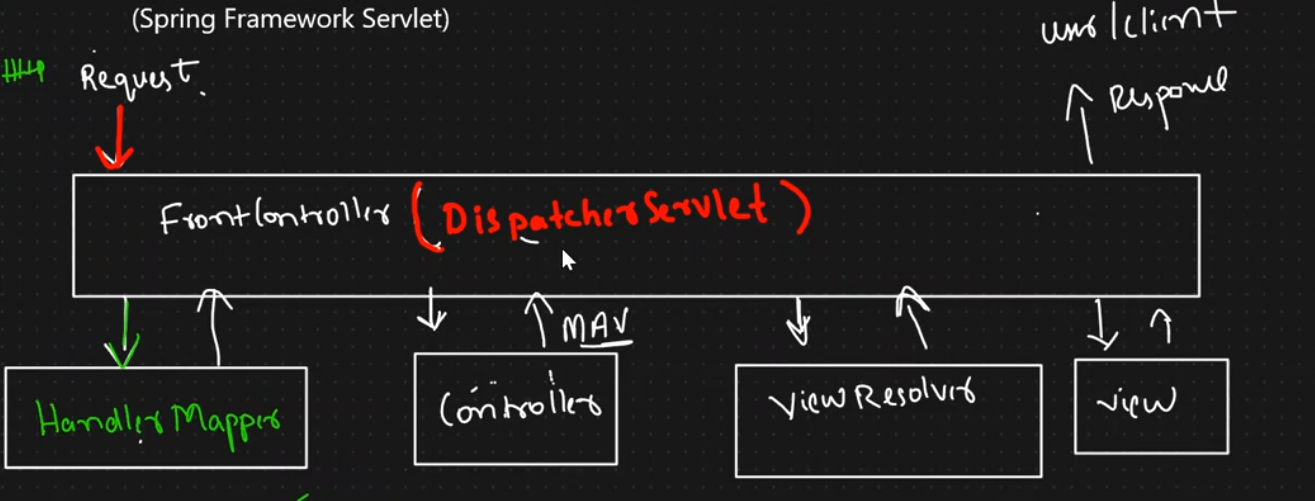 (Spring Framework Servlet)
user/client
Http
Request.
Response
FrontController (DispatcherServlet)
MAV
Handler Mapper
Controller
ViewResolver
view